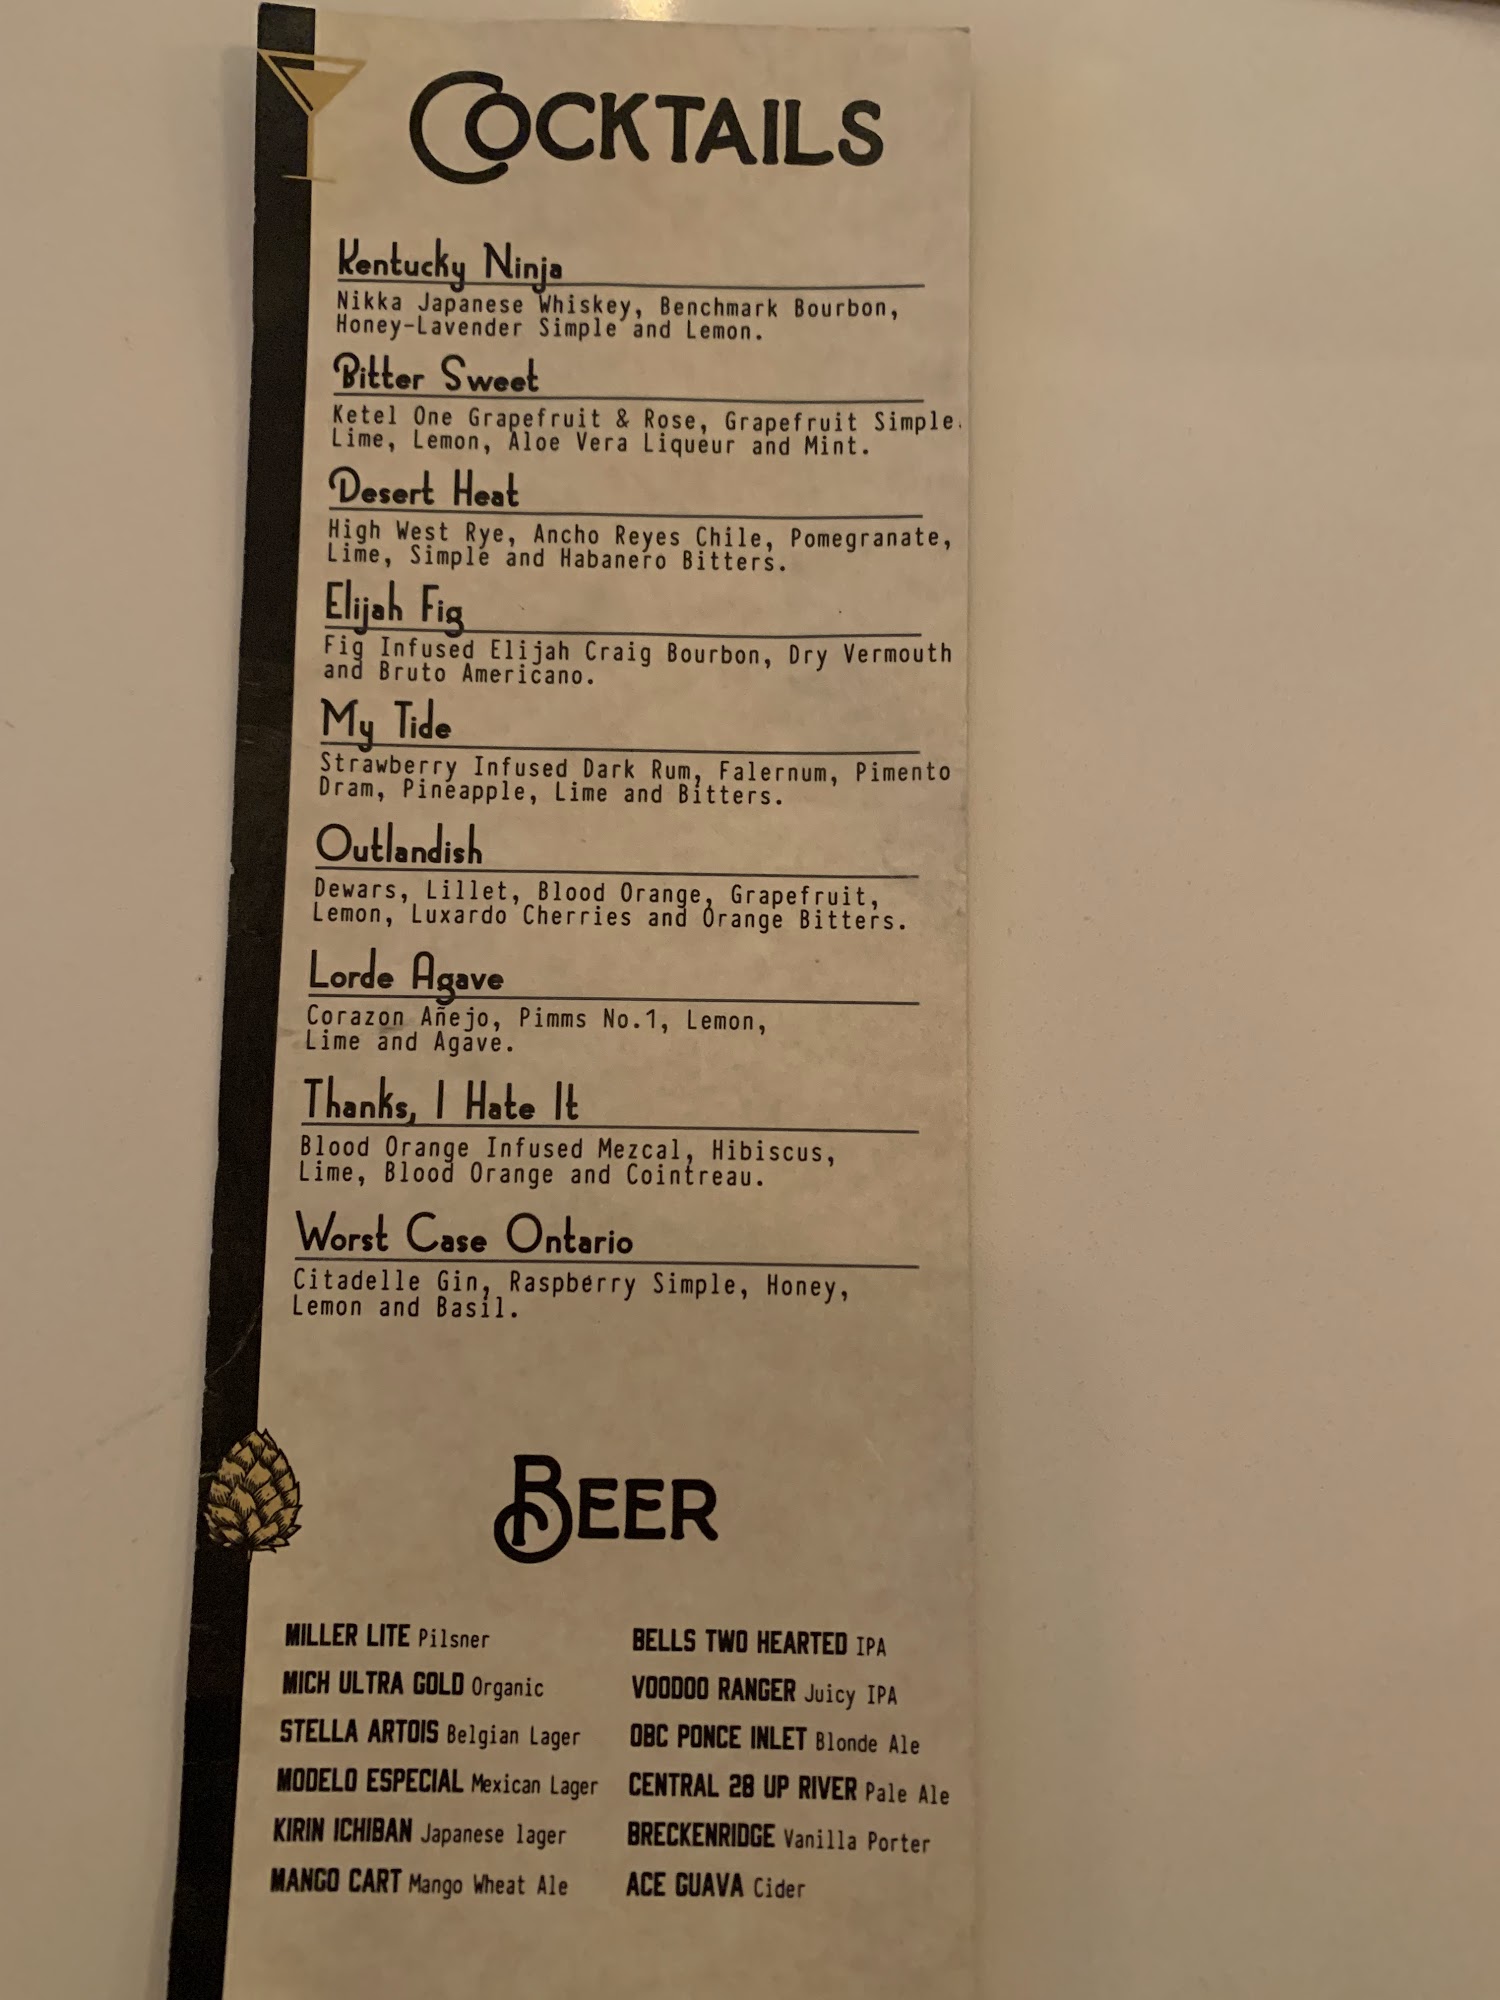 Cocktails
Kentucky Ninja
Nikka Japanese Whiskey, Benchmark Bourbon,
Honey-Lavender Simple and Lemon.
Bitter Sweet
Ketel One Grapefruit & Rose, Grapefruit Simple.
Lime, Lemon, Aloe Vera Liqueur and Mint.
Desert Heat
High West Rye, Ancho Reyes Chile, Pomegranate,
Lime, Simple and Habanero Bitters.
Elijah Fig
Fig Infused Elijah Craig Bourbon, Dry Vermouth
and Bruto Americano.
My Tide
Strawberry Infused Dark Rum, Falernum, Pimento
Dram, Pineapple, Lime and Bitters.
Outlandish
Dewars, Lillet, Blood Orange, Grapefruit,
Lemon, Luxardo Cherries and Orange Bitters.
Lorde Agave
Corazon Añejo, Pimms No.1, Lemon,
Lime and Agave.
Thanks, I Hate It
Blood Orange Infused Mezcal, Hibiscus,
Lime, Blood Orange and Cointreau.
Worst Case Ontario
Citadelle Gin, Raspberry Simple, Honey,
Lemon and Basil.
Beer
MILLER LITE Pilsner
MICH ULTRA GOLD Organic
STELLA ARTOIS Belgian Lager
MODELO ESPECIAL Mexican Lager
KIRIN ICHIBAN Japanese lager
MANGO CART Mango Wheat Ale
BELLS TWO HEARTED IPA
VOODOO RANGER Juicy IPA
OBC PONCE INLET Blonde Ale
CENTRAL 28 UP RIVER Pale Ale
BRECKENRIDGE Vanilla Porter
ACE GUAVA Cider